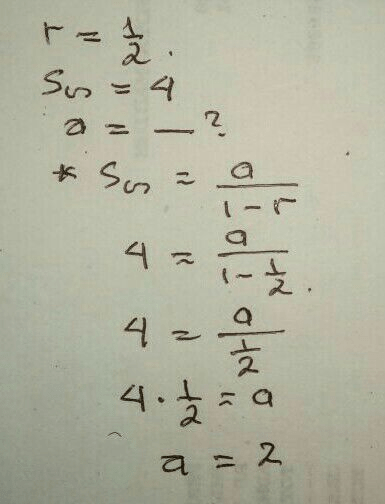 r = 1/2.
S∞ = 4
a = — ?
* S∞ = a/(1-r)
4 = a/(1-1/2).
4 = a/(1/2)
4 · 1/2 = a
a = 2